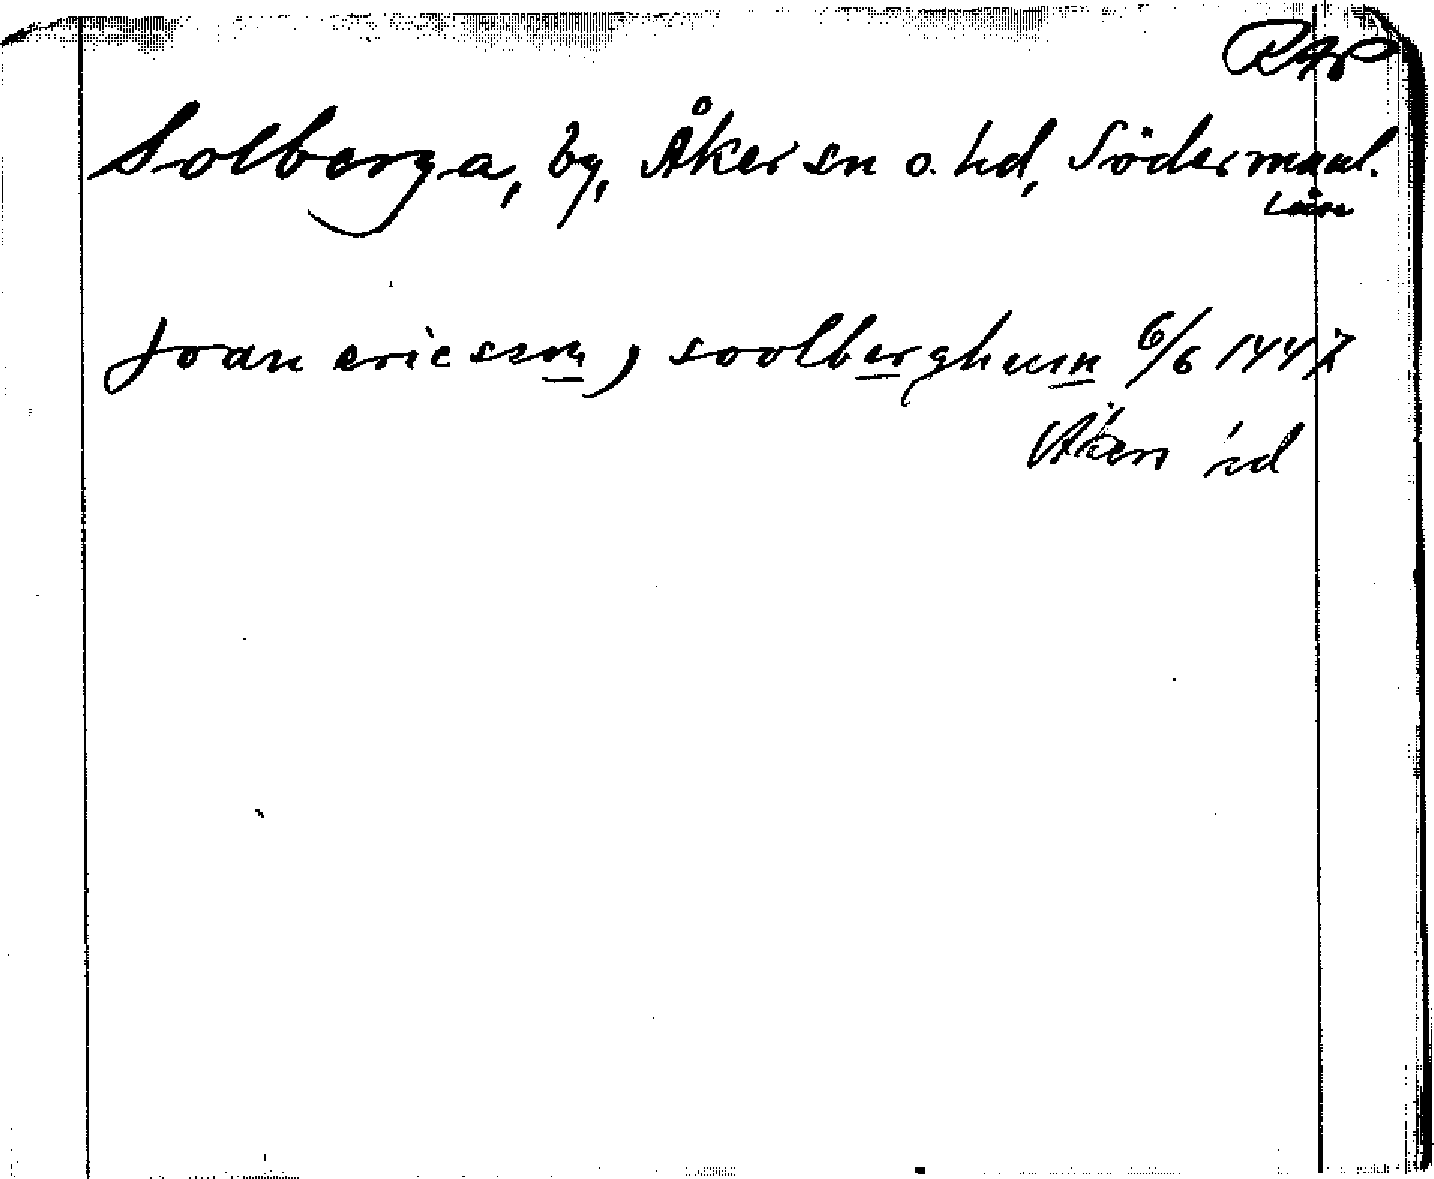 RAP
Solberga, by, Åker sn o. hd, Södermanl.
län
Joan ericsson, soolberghum 6/6 1447
Åkers